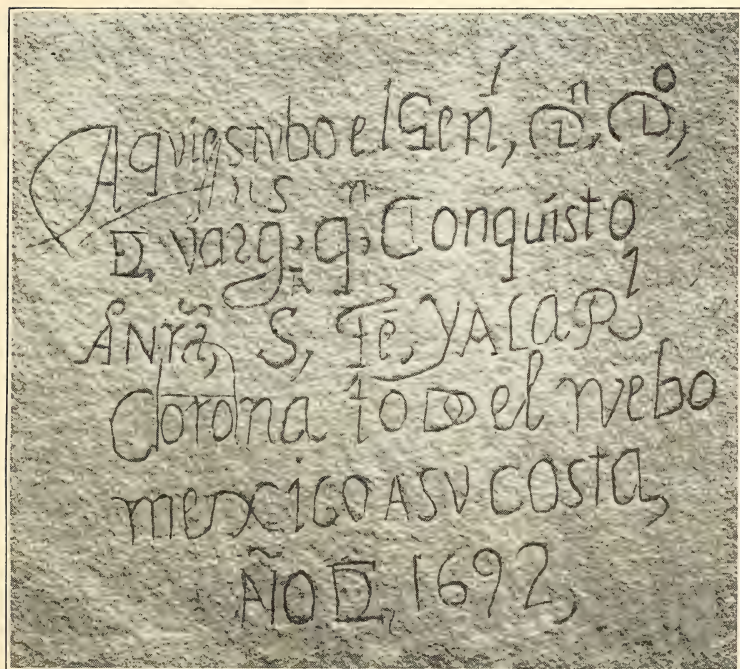 Aqui estvbo el Genl, Dn, Do,
D, varg, qn Conquisto
A Nra, S, Fe, Y A la Rl
Corona todo el nvebo
mexcico A SV costa,
AÑO D, 1692,